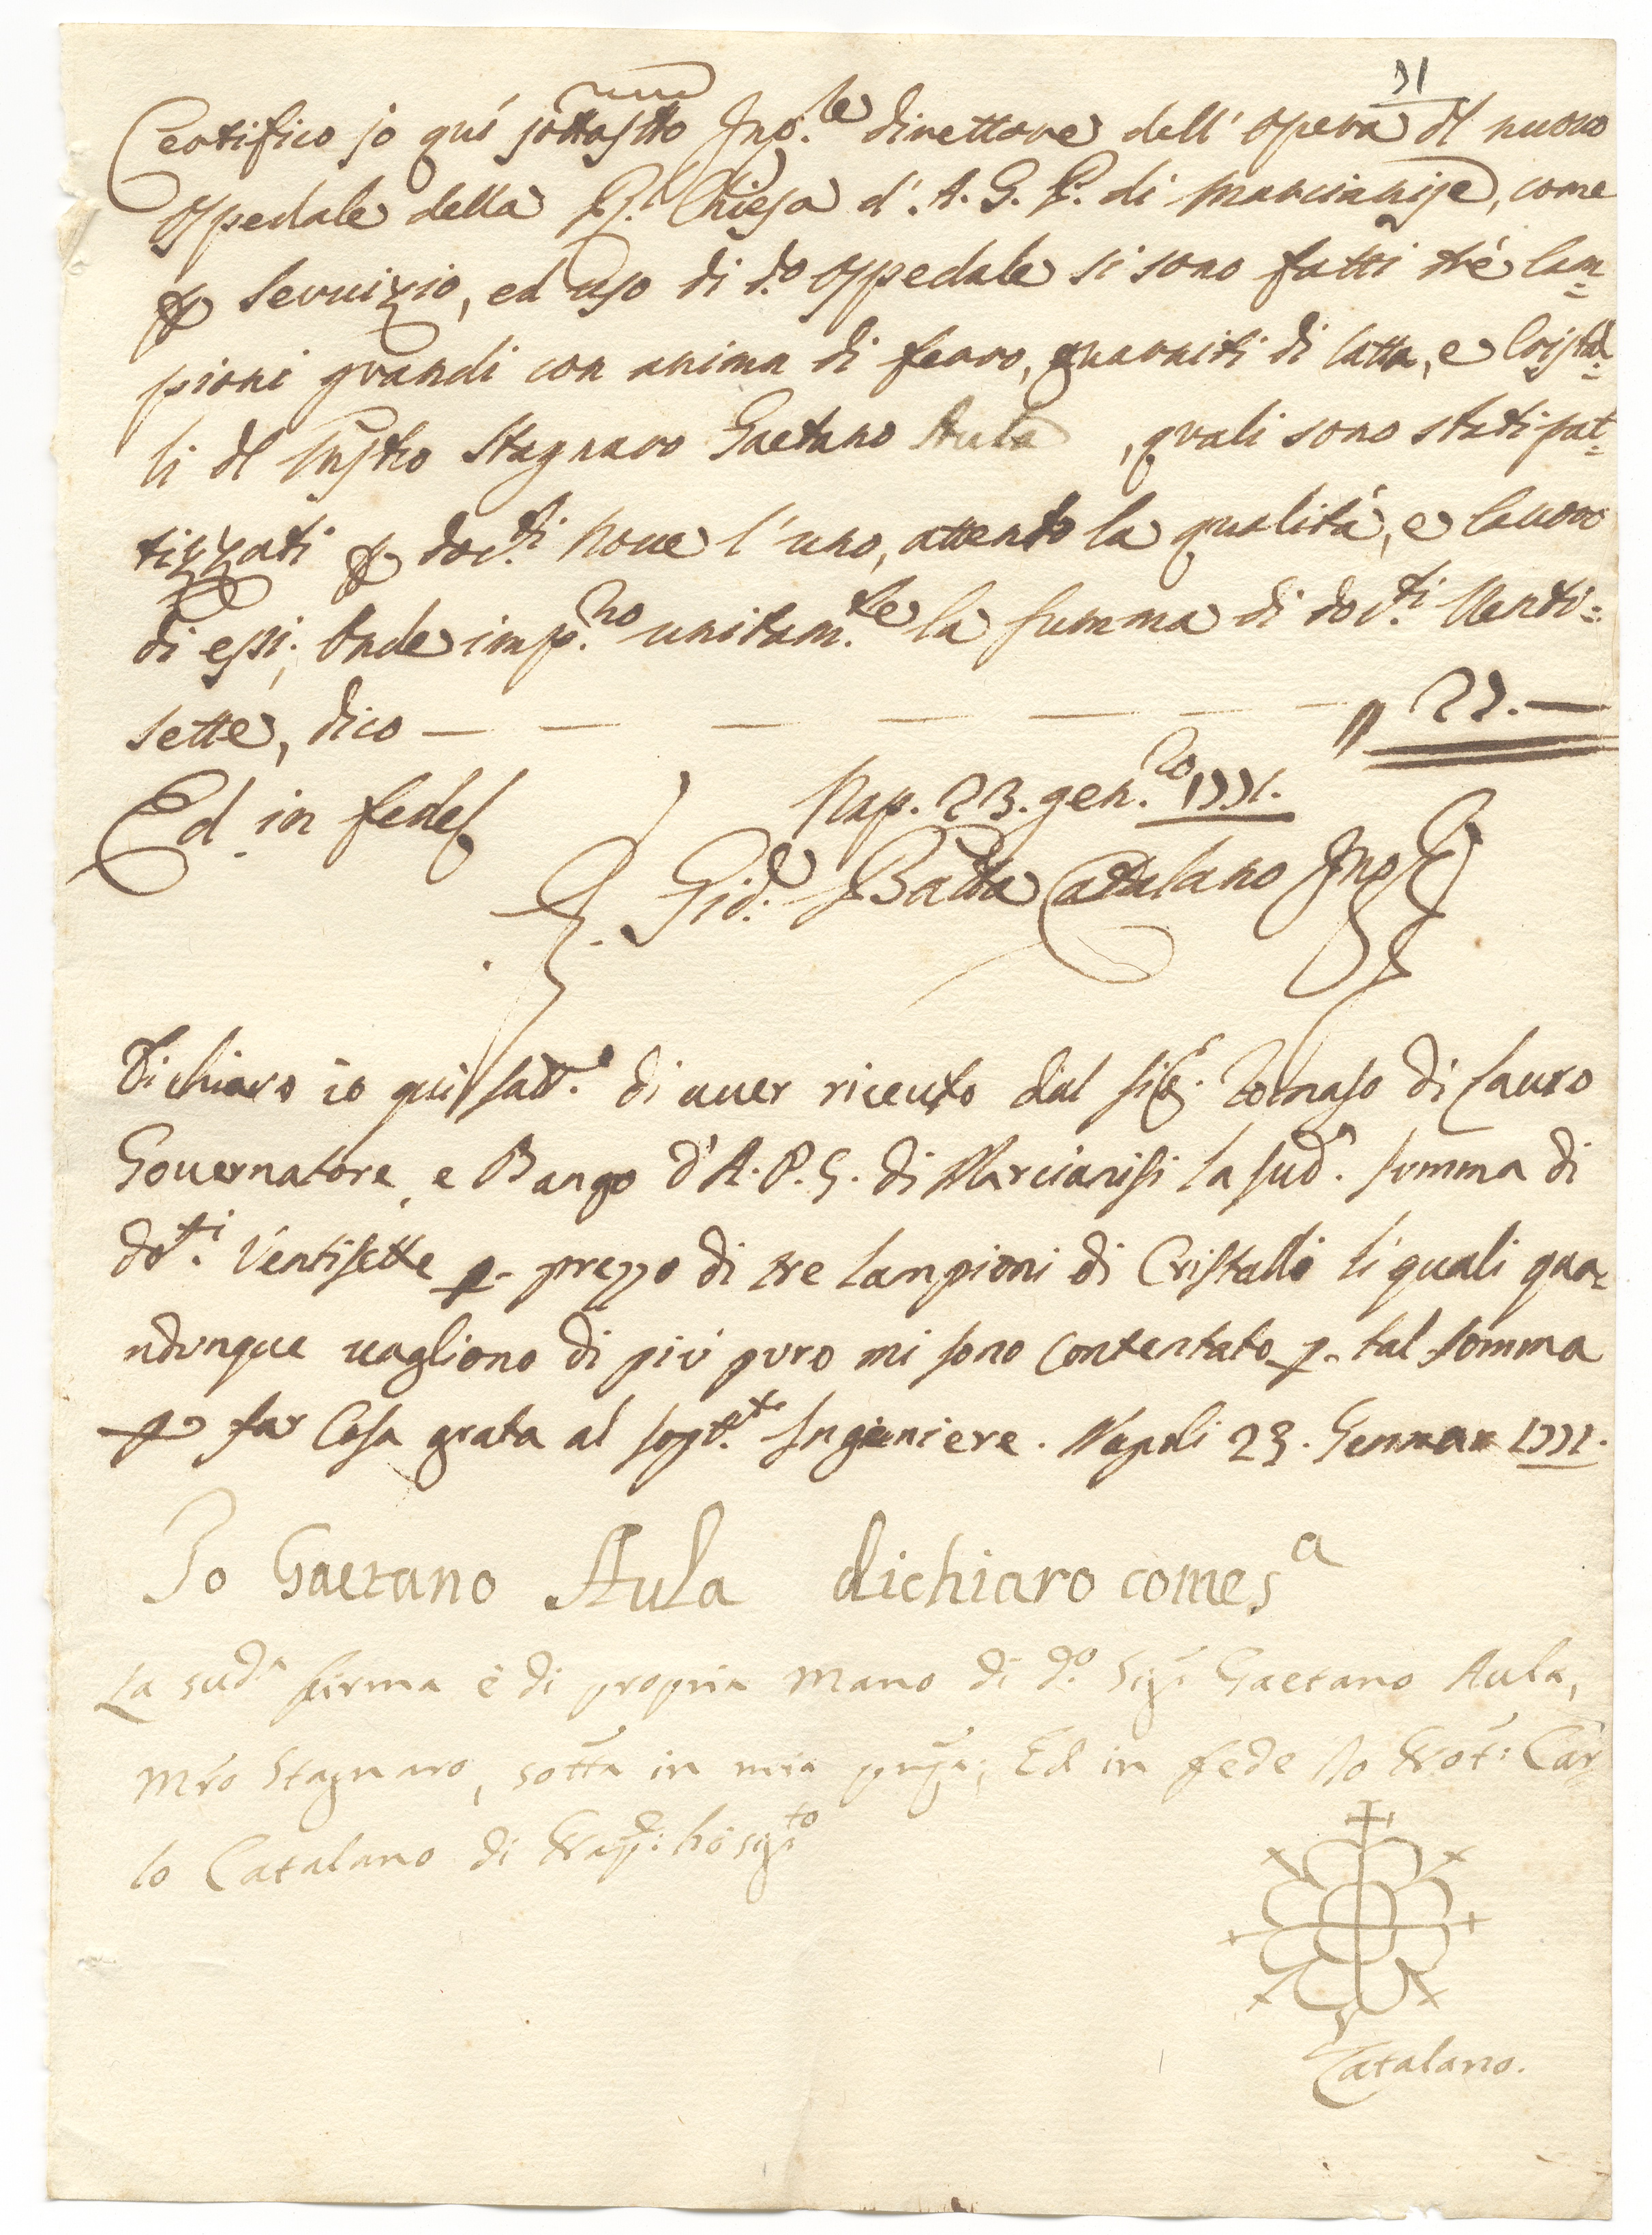 71
Certifico jo quí sottastto Ing.le direttore dell' opera del nuovo
Ospedale della R.l Chiesa d'. A. G. P. di Marcianise, come
per servizio, ed uso di d.o Ospedale si sono fatti tré lam=
pioni grandi con anima di ferro, guarniti di latta, e Cristal=
li dl Mastro Stagnaro Gaetano Aula, quali sono stati pat=
tizzati per doc.ti nove l'uno, attento la qualità, e lavoro
di essi; Onde imp.no unitam.te la summa di doc.ti Venti=
sette, dico — — — — — — — 27.—
Ed in fede
Nap. 23. gen.ro 1771.
Gio: Batta Catalano Ing
Dichiaro io qui sott.o di aver riceuto dal Sig.r Tomaso di Lauro
Governatore, e Bango d'A. P. G. di Marcianisi la sud.a summa di
do.ti Ventisette p. prezzo di tre Lampioni di Cristallo li quali qua=
ndunque vagliono di piú puro mi sono Contentato p. tal somma
per far Cosa grata al Ingeniere. Napoli 23. Gennar 1771.
Io Gaetano Aula dichiaro come s.a
La sud.a firma è di propria mano di d.o Sig.r Gaetano Aula,
Mro Stagnaro, sotta in mia pnza; Ed in fede Io Not: Car
lo Catalano di Nap: hò sig.to
Catalano.